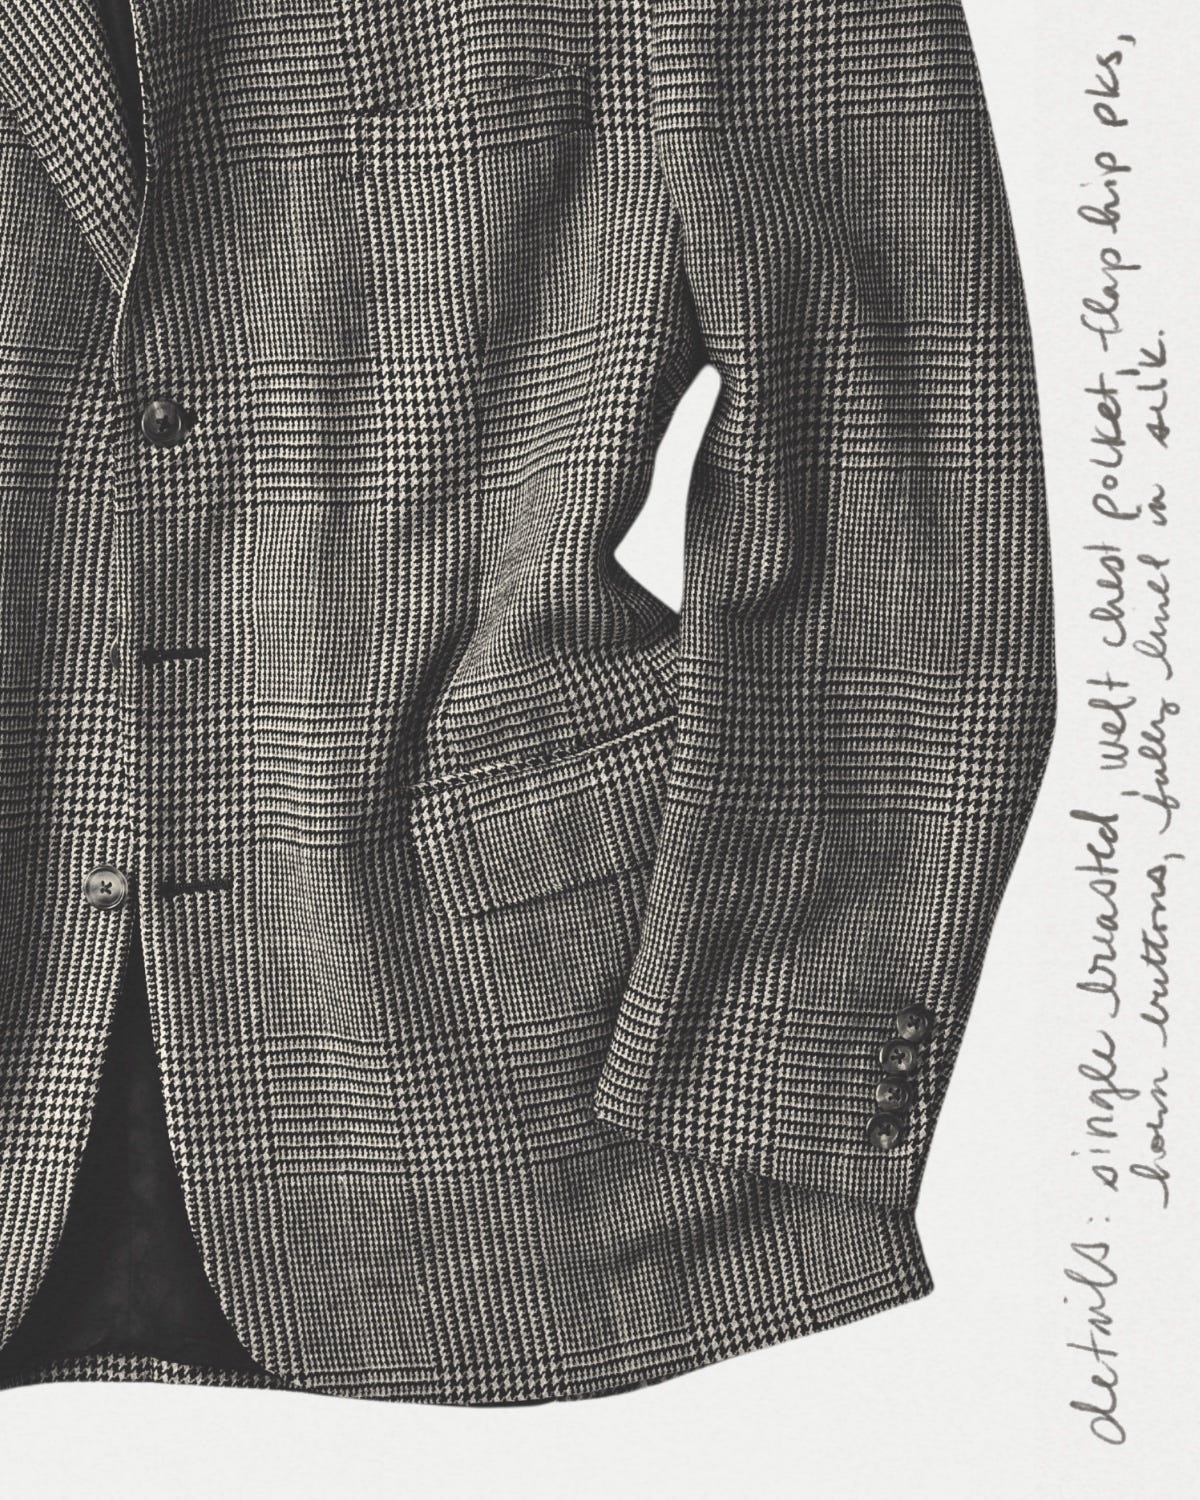 details: single breasted, welt chest pocket, flap hip pks,
horn buttons, fully lined in silk.